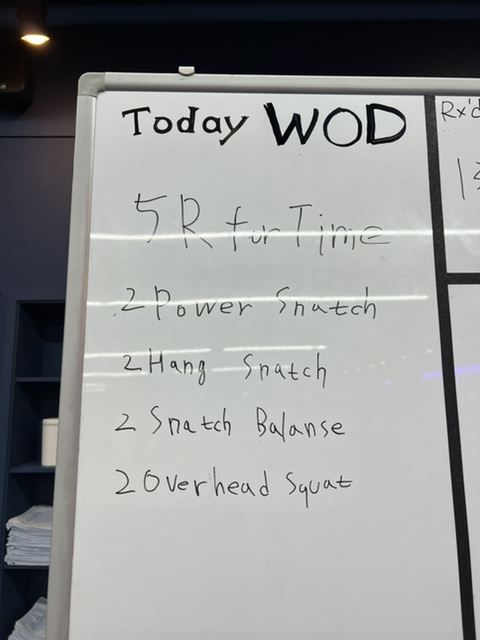 Today WOD
5R for Time
2 Power Snatch
2 Hang Snatch
2 Snatch Balanse
2 Overhead Squat
Rx'd